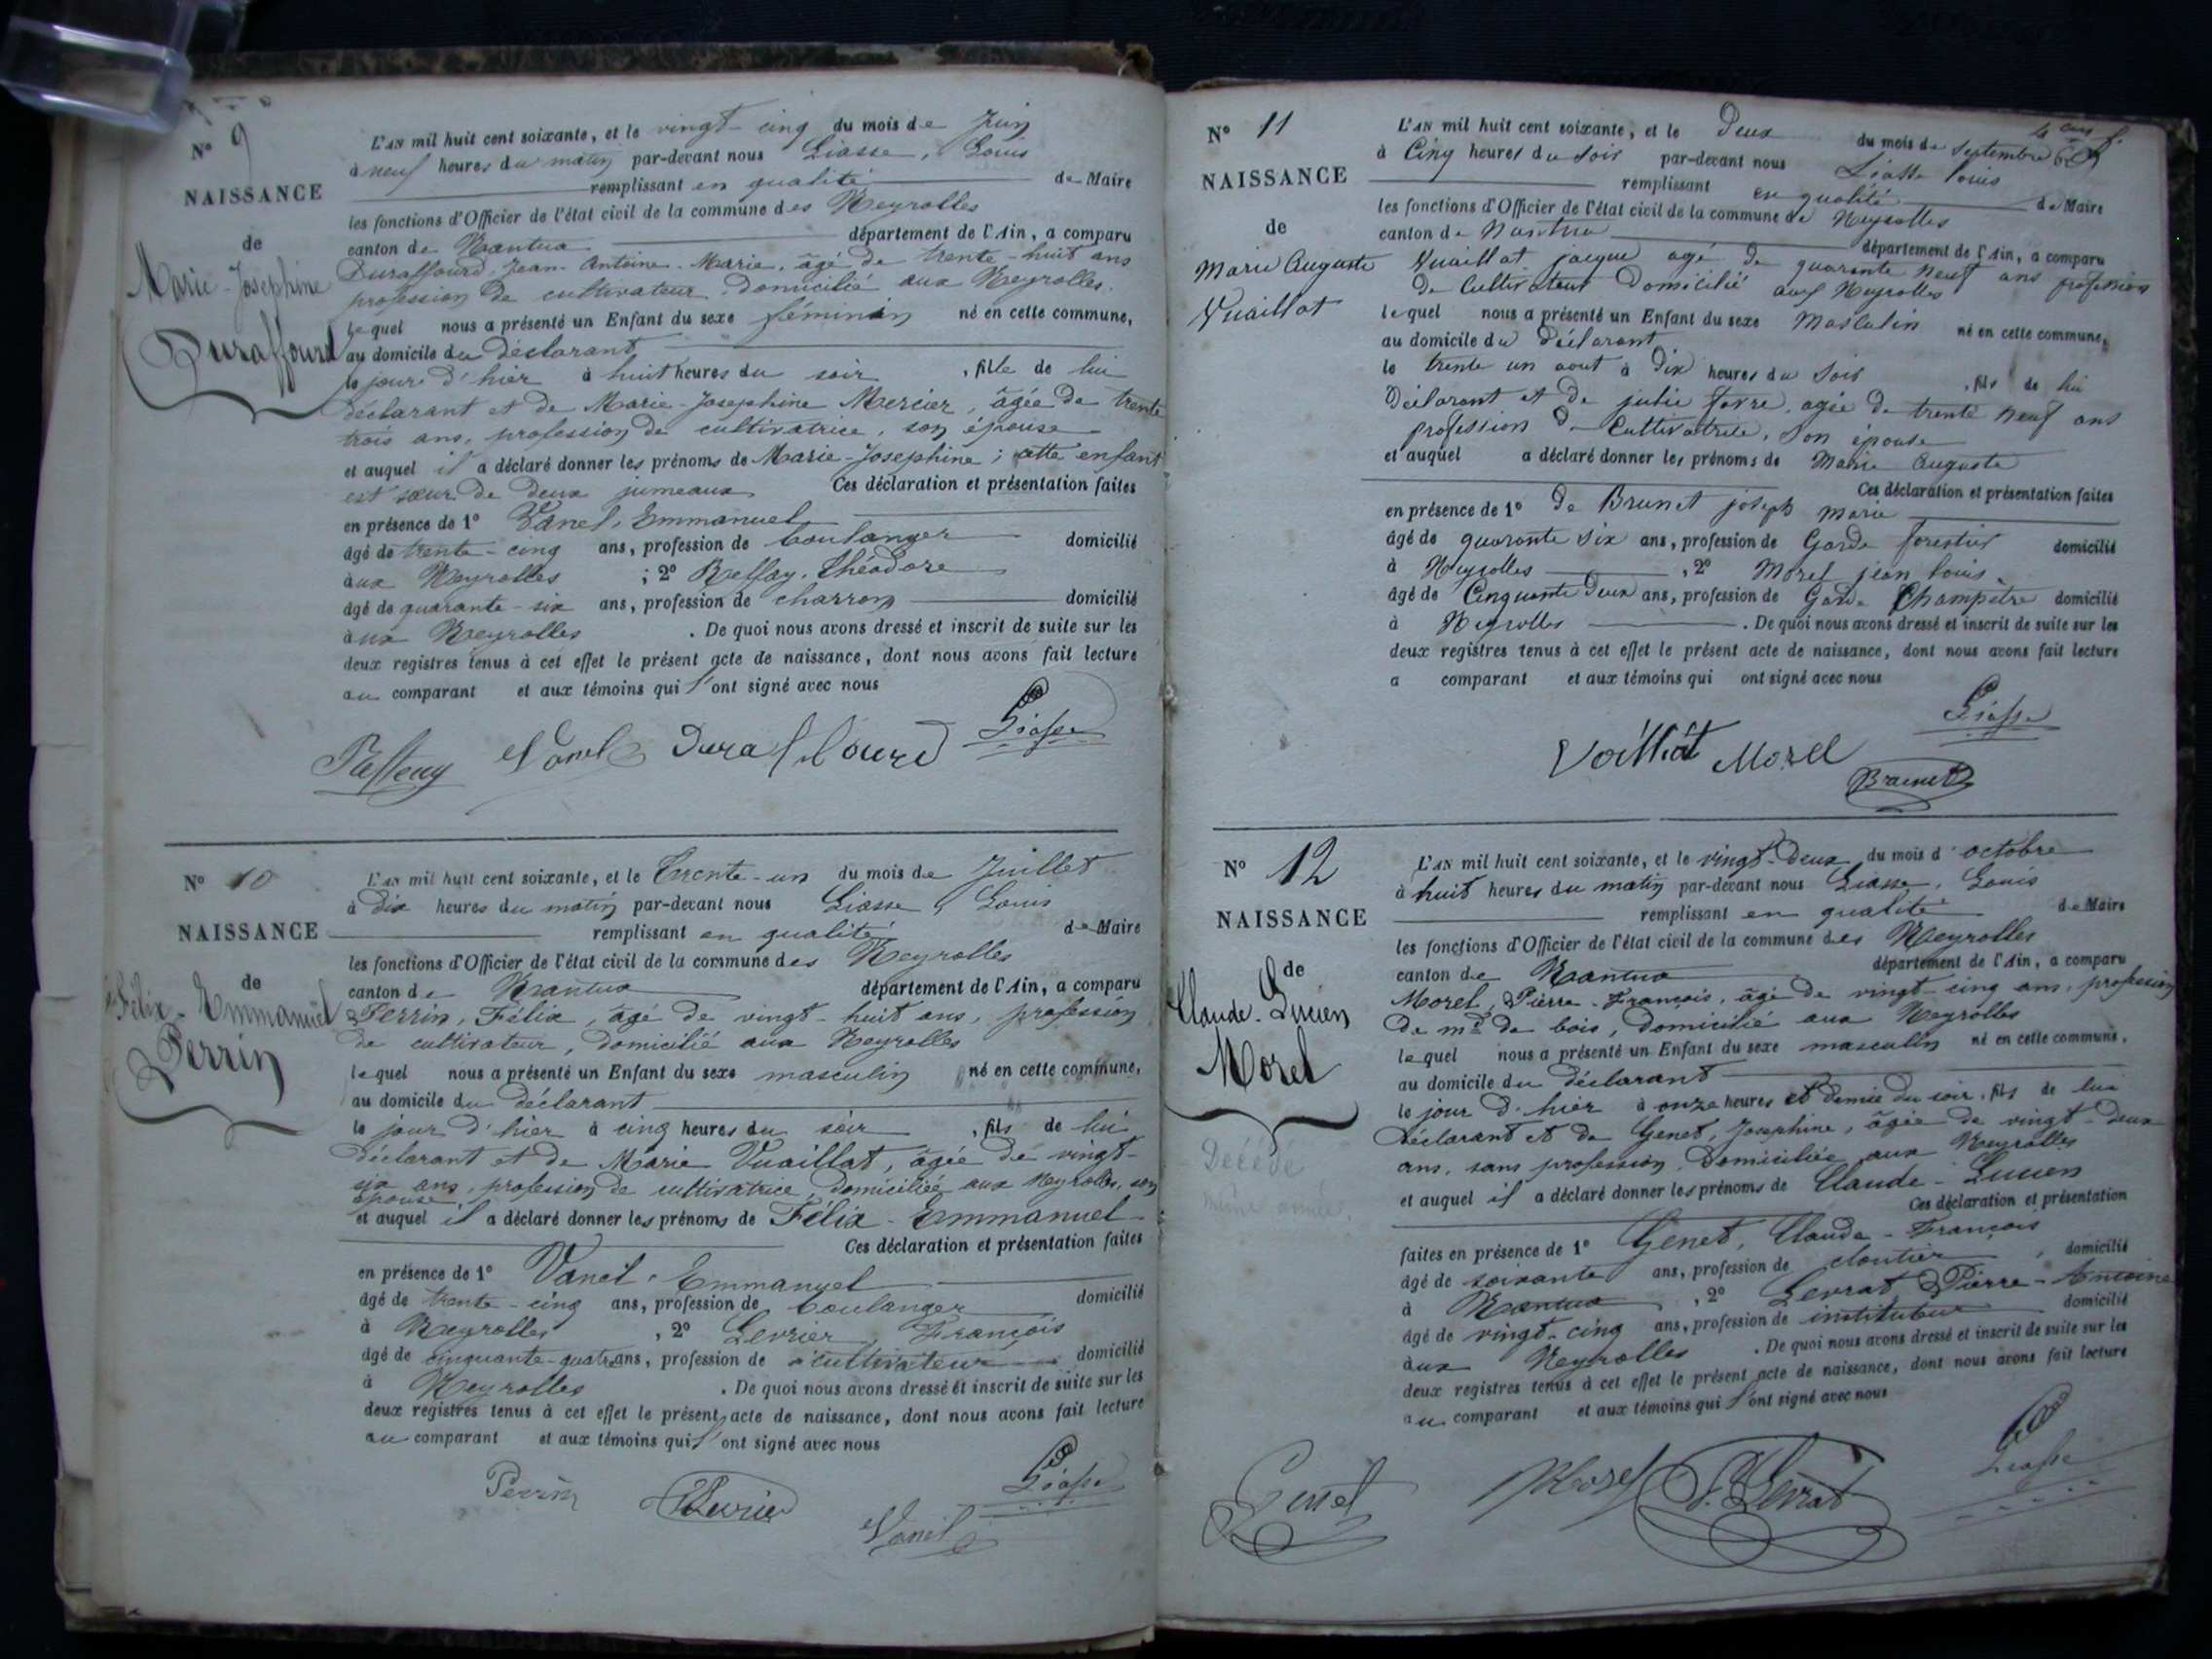 N° 9
NAISSANCE
de
Marie-Josephine
Duraffourd
L'AN mil huit cent soixante, et le vingt-cinq du mois de Juin
à neuf heures du matin par-devant nous Liasse, Louis
remplissant en qualité de Maire
les fonctions d'Officier de l'état civil de la commune des Neyrolles
canton de Nantua département de l'Ain, a comparu
Duraffourd, Jean-Antoine-Marie, âgé de trente-huit ans
profession de cultivateur, domicilié aux Neyrolles.
lequel nous a présenté un Enfant du sexe féminin né en cette commune,
au domicile du déclarant
le jour d'hier à huit heures du soir, fille de lui
déclarant et de Marie-Josephine Mercier, âgée de trente
trois ans, profession de cultivatrice, son épouse
et auquel il a déclaré donner les prénoms de Marie-Josephine; cette enfant
est sœur de deux jumeaux Ces déclaration et présentation faites
en présence de 1° Vanel, Emmanuel
âgé de trente-cinq ans, profession de boulanger domicilié
aux Neyrolles; 2° Reffay, Théodore
âgé de quarante-six ans, profession de charron domicilié
aux Neyrolles. De quoi nous avons dressé et inscrit de suite sur les
deux registres tenus à cet effet le présent acte de naissance, dont nous avons fait lecture
au comparant et aux témoins qui l'ont signé avec nous
Vanel Duraffourd Liasse
N° 10
NAISSANCE
de
Félix-Emmanuel
Perrin
L'AN mil huit cent soixante, et le trente-un du mois de Juillet
à dix heures du matin par-devant nous Liasse, Louis
remplissant en qualité de Maire
les fonctions d'Officier de l'état civil de la commune des Neyrolles
canton de Nantua département de l'Ain, a comparu
Perrin, Félix, âgé de vingt-huit ans, profession
de cultivateur, domicilié aux Neyrolles
lequel nous a présenté un Enfant du sexe masculin né en cette commune,
au domicile du déclarant
le jour d'hier à cinq heures du soir, fils de lui
déclarant et de Marie Vuaillat, âgée de vingt-
six ans, profession de cultivatrice, domiciliée aux Neyrolles, son
épouse
et auquel il a déclaré donner les prénoms de Félix-Emmanuel
Ces déclaration et présentation faites
en présence de 1° Vanel, Emmanuel
âgé de trente-cinq ans, profession de boulanger domicilié
à Neyrolles, 2° Levrier, François
âgé de cinquante-quatre ans, profession de cultivateur domicilié
à Neyrolles. De quoi nous avons dressé et inscrit de suite sur les
deux registres tenus à cet effet le présent acte de naissance, dont nous avons fait lecture
au comparant et aux témoins qui l'ont signé avec nous
Perrin Levrier Vanel Liasse
N° 11
NAISSANCE
de
Marie Auguste
Vuaillat
L'AN mil huit cent soixante, et le Deux du mois de Septembre
à Cinq heures du Soir par-devant nous Liasse Louis
remplissant en qualité de Maire
les fonctions d'Officier de l'état civil de la commune de Neyrolles
canton de Nantua département de l'Ain, a comparu
Vuaillat jacque agé de quarante Neuf ans profession
De Cultivateur Domicilié aux Neyrolles
lequel nous a présenté un Enfant du sexe Masculin né en cette commune,
au domicile du Déclarant
le trente un aout à Dix heures du Soir, fils de lui
Déclarant et De julie favre, agée de trente Neuf ans
profession De Cultivatrice, Son épouse
et auquel a déclaré donner les prénoms de Marie Auguste
Ces déclaration et présentation faites
en présence de 1° De Brunet joseph marie
âgé de quarante Six ans, profession de Garde forestier domicilié
à Neyrolles, 2° Morel jean louis
âgé de Cinquante Deux ans, profession de Garde Champêtre domicilié
à Neyrolles. De quoi nous avons dressé et inscrit de suite sur les
deux registres tenus à cet effet le présent acte de naissance, dont nous avons fait lecture
a comparant et aux témoins qui ont signé avec nous
Liasse
Voilliat Morel
Brunet
N° 12
NAISSANCE
de
Claude-Lucien
Morel
Décédé
même année.
L'AN mil huit cent soixante, et le vingt-deux du mois d'octobre
à huit heures du matin par-devant nous Liasse, Louis
remplissant en qualité de Maire
les fonctions d'Officier de l'état civil de la commune des Neyrolles
canton de Nantua département de l'Ain, a comparu
Morel, Pierre-François, âgé de vingt-cinq ans, profession
de md de bois, domicilié aux Neyrolles
lequel nous a présenté un Enfant du sexe masculin né en cette commune,
au domicile du déclarant
le jour d'hier à onze heures et demie du soir, fils de lui
déclarant et de Genet, Josephine, âgée de vingt-deux
ans, sans profession, domiciliée aux Neyrolles
et auquel il a déclaré donner les prénoms de Claude-Lucien
Ces déclaration et présentation
faites en présence de 1° Genet, Claude-François
âgé de soixante ans, profession de cloutier, domicilié
à Nantua, 2° Levrat, Pierre-Antoine
âgé de vingt-cinq ans, profession de instituteur domicilié
aux Neyrolles. De quoi nous avons dressé et inscrit de suite sur les
deux registres tenus à cet effet le présent acte de naissance, dont nous avons fait lecture
au comparant et aux témoins qui l'ont signé avec nous
Genet Morel P. Levrat Liasse